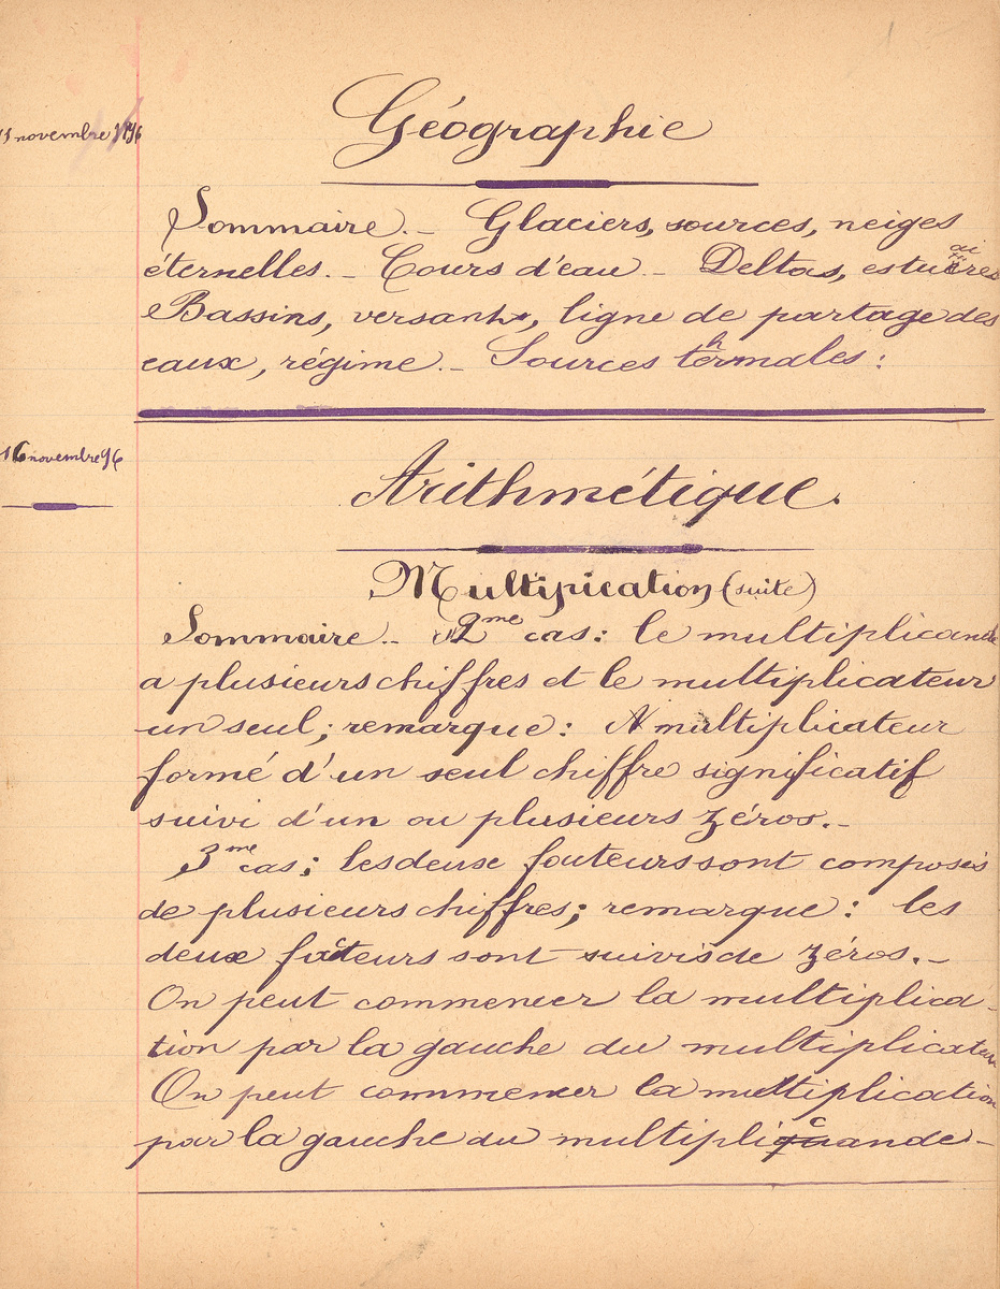 11 novembre 1896
Géographie
Sommaire. - Glaciers, sources, neiges
éternelles. - Cours d'eau - Deltas, estuaires
Bassins, versants, ligne de partage des
eaux, régime. - Sources thermales :
16 novembre 96
Arithmétique.
Multipication (suite)
Sommaire. - 2me cas : le multiplicande
a plusieurs chiffres et le multiplicateur
un seul ; remarque : multiplicateur
formé d'un seul chiffre significatif
suivi d'un ou plusieurs zéros. -
3me cas ; les deux fauteurs sont composés
de plusieurs chiffres ; remarque : les
deux facteurs sont suivis de zéros. -
On peut commencer la multiplica-
tion par la gauche du multiplicateur
On peut commencer la multiplication
par la gauche du multiplicande -